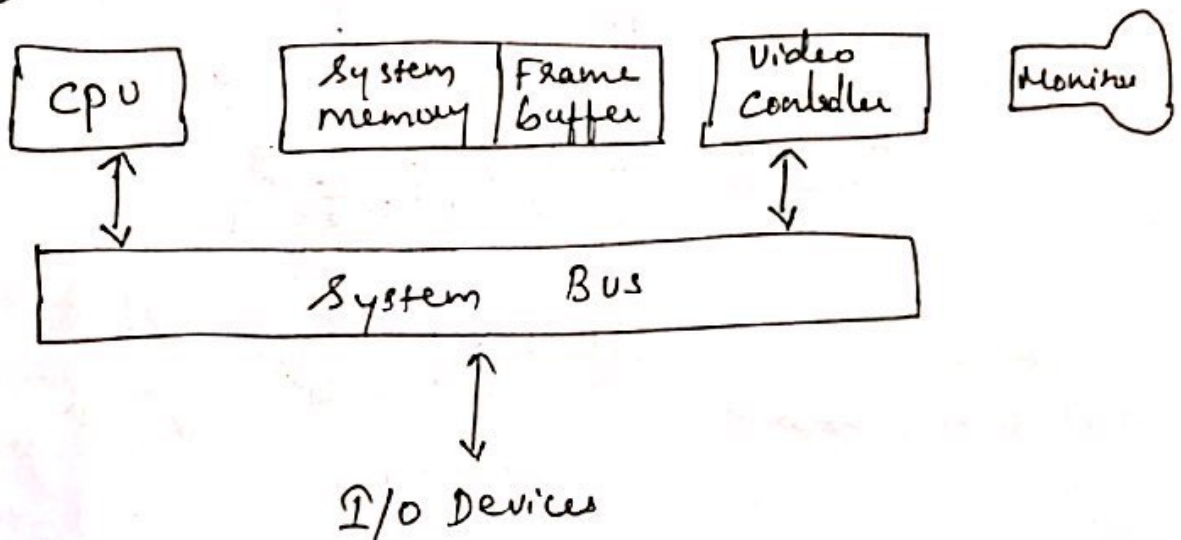 CPU
System
memory
Frame
buffer
Video
Controller
Monitor
System Bus
I/O Devices